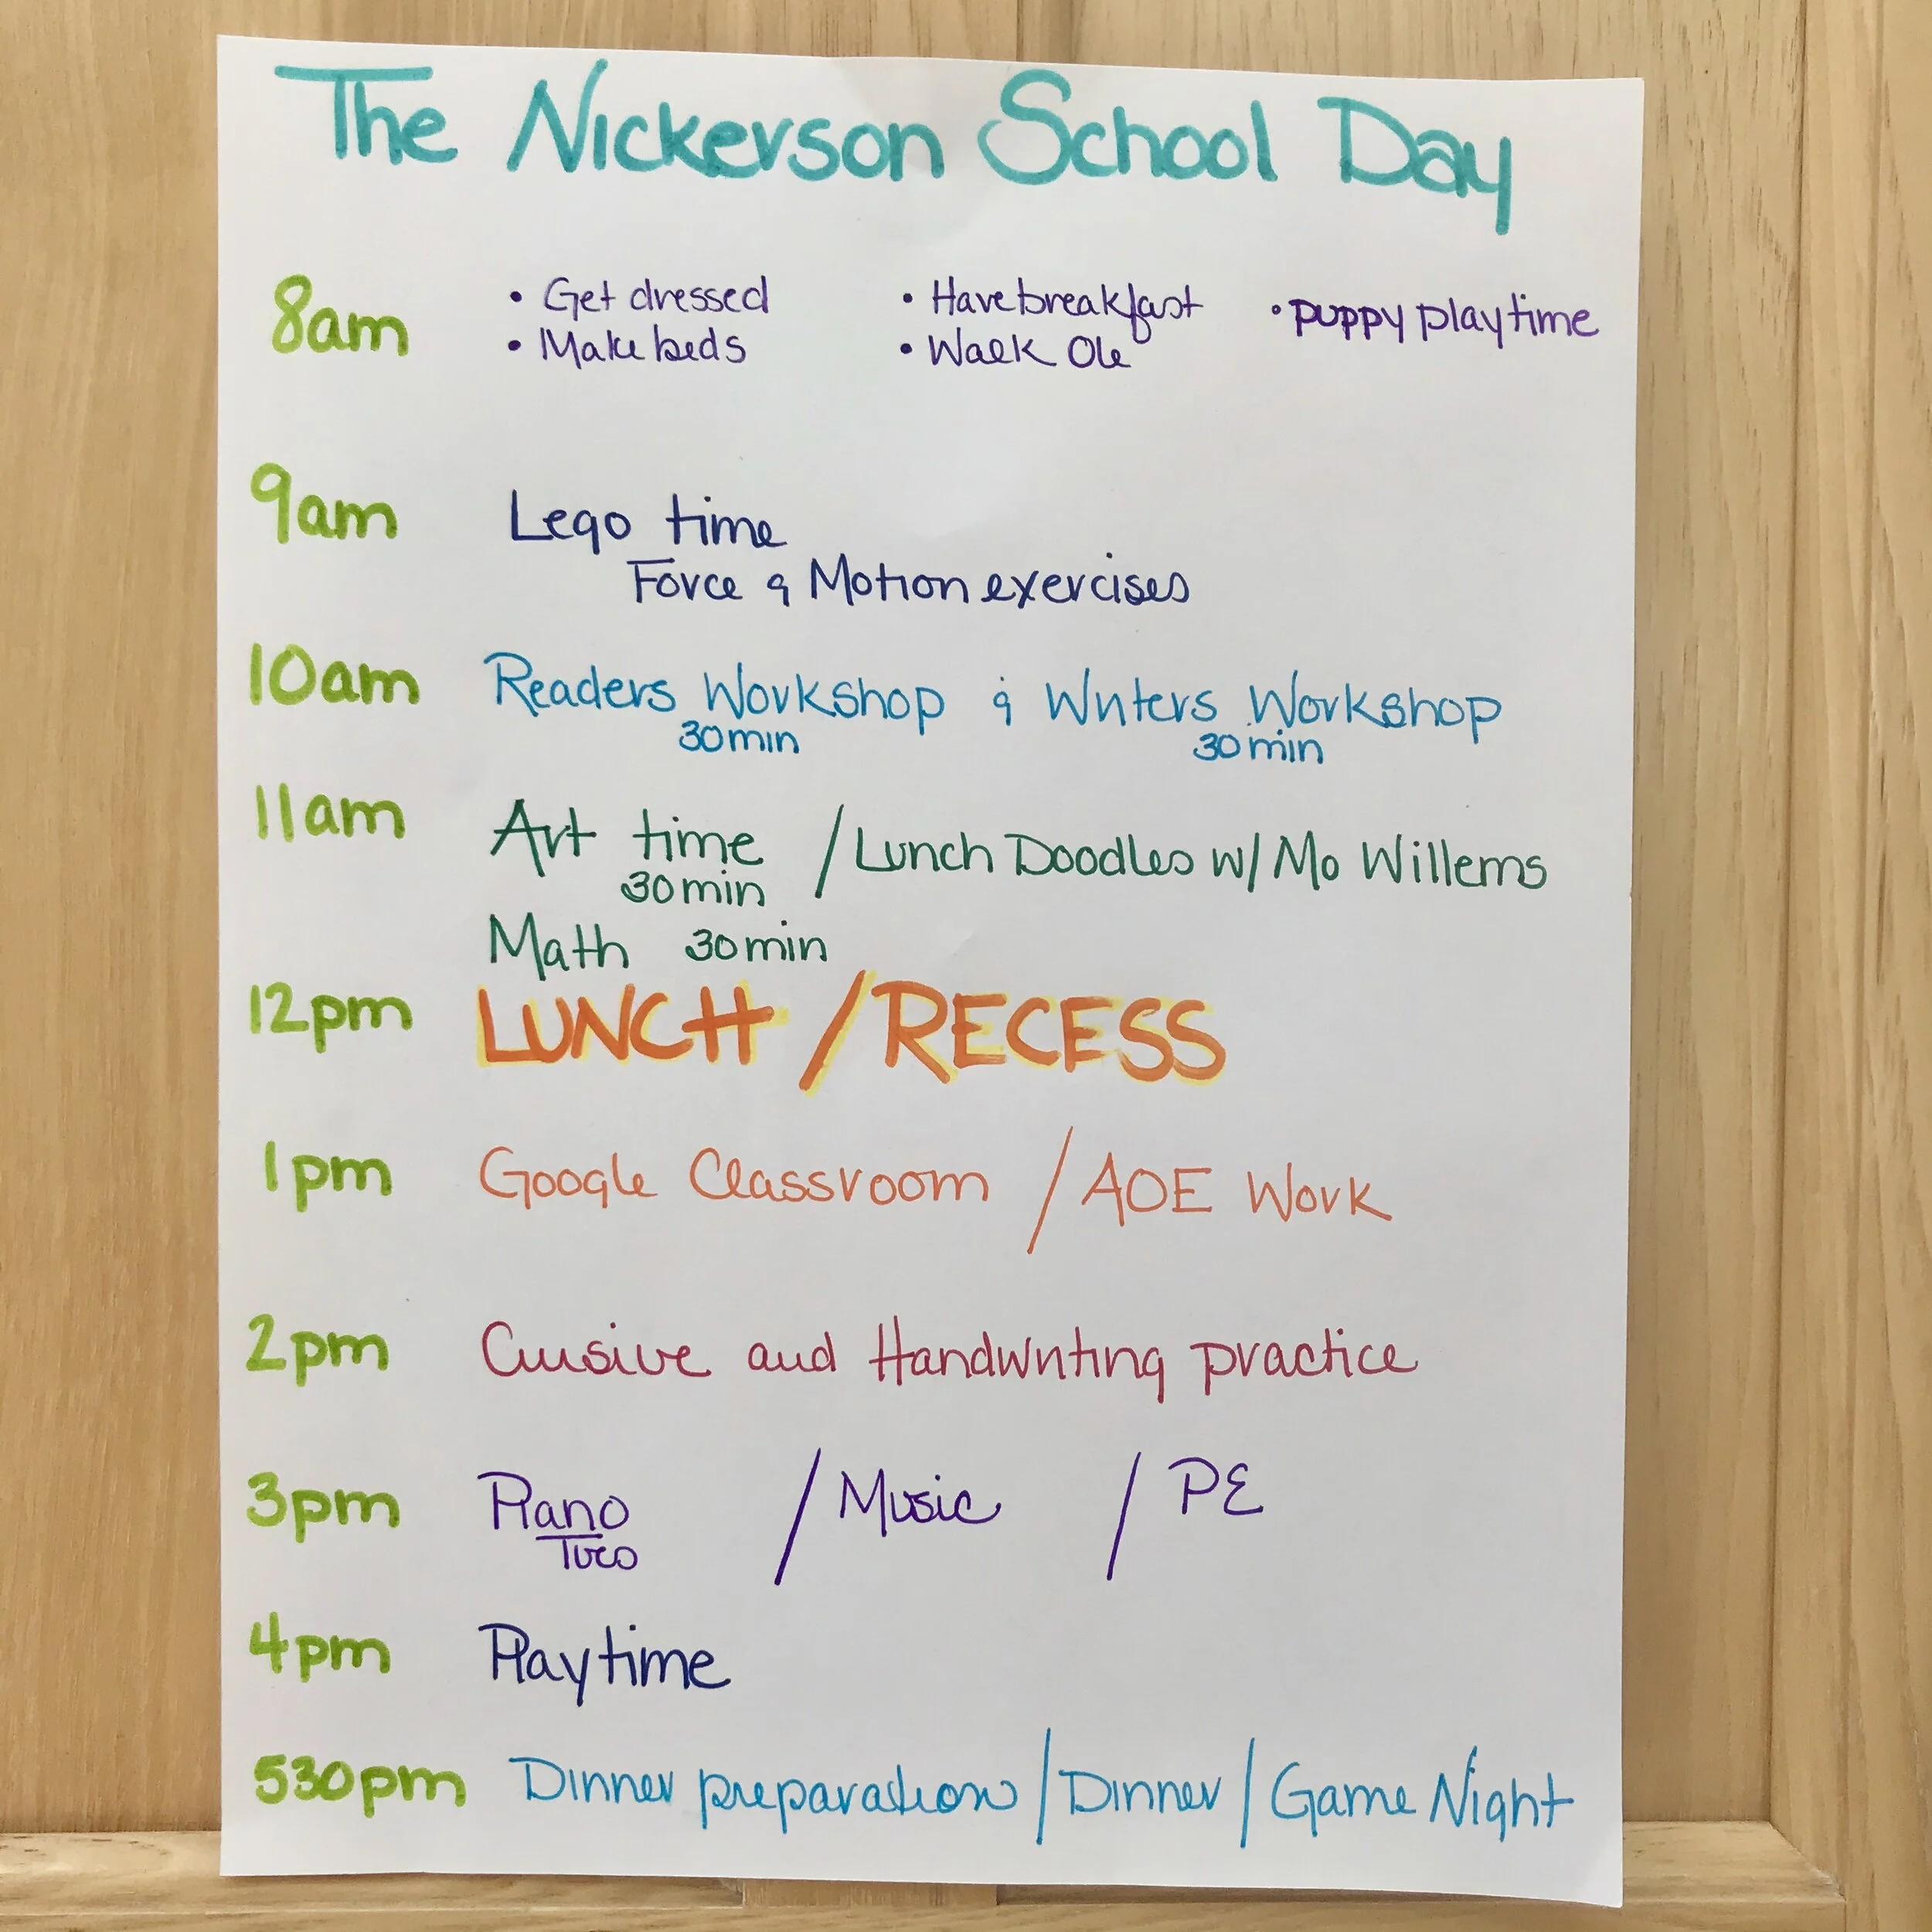 The Nickerson School Day
8am
• Get dressed • Have breakfast • puppy playtime
• Make beds • Walk Ole
9am Lego time
Force & Motion exercises
10am Readers Workshop & Writers Workshop
30min 30min
11am Art time / Lunch Doodles w/ Mo Willems
30min
Math 30min
12pm LUNCH / RECESS
1pm Google Classroom / AOE Work
2pm Cursive and Handwriting practice
3pm Piano / Music / PE
Tuco
4pm Playtime
530pm Dinner preparation / Dinner / Game Night